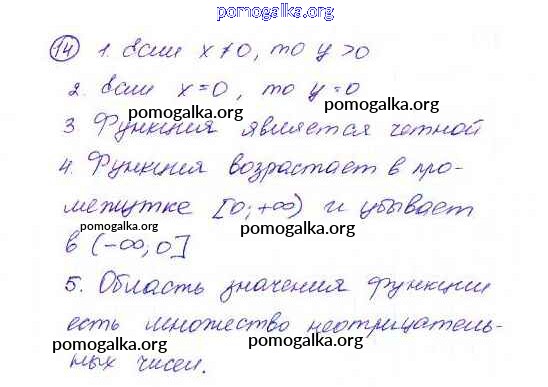 pomogalka.org
14 1. Если x ≠ 0, то y > 0
2. Если x = 0, то y = 0
pomogalka.org pomogalka.org
3 Функция является четной
4. Функция возрастает в про-
pomogalka.org pomogalka.org
межутке [0; +∞) и убывает
pomogalka.org pomogalka.org
в (-∞; 0]
5. Область значения функции
есть множество неотрицатель-
pomogalka.org pomogalka.org
ных чисел.